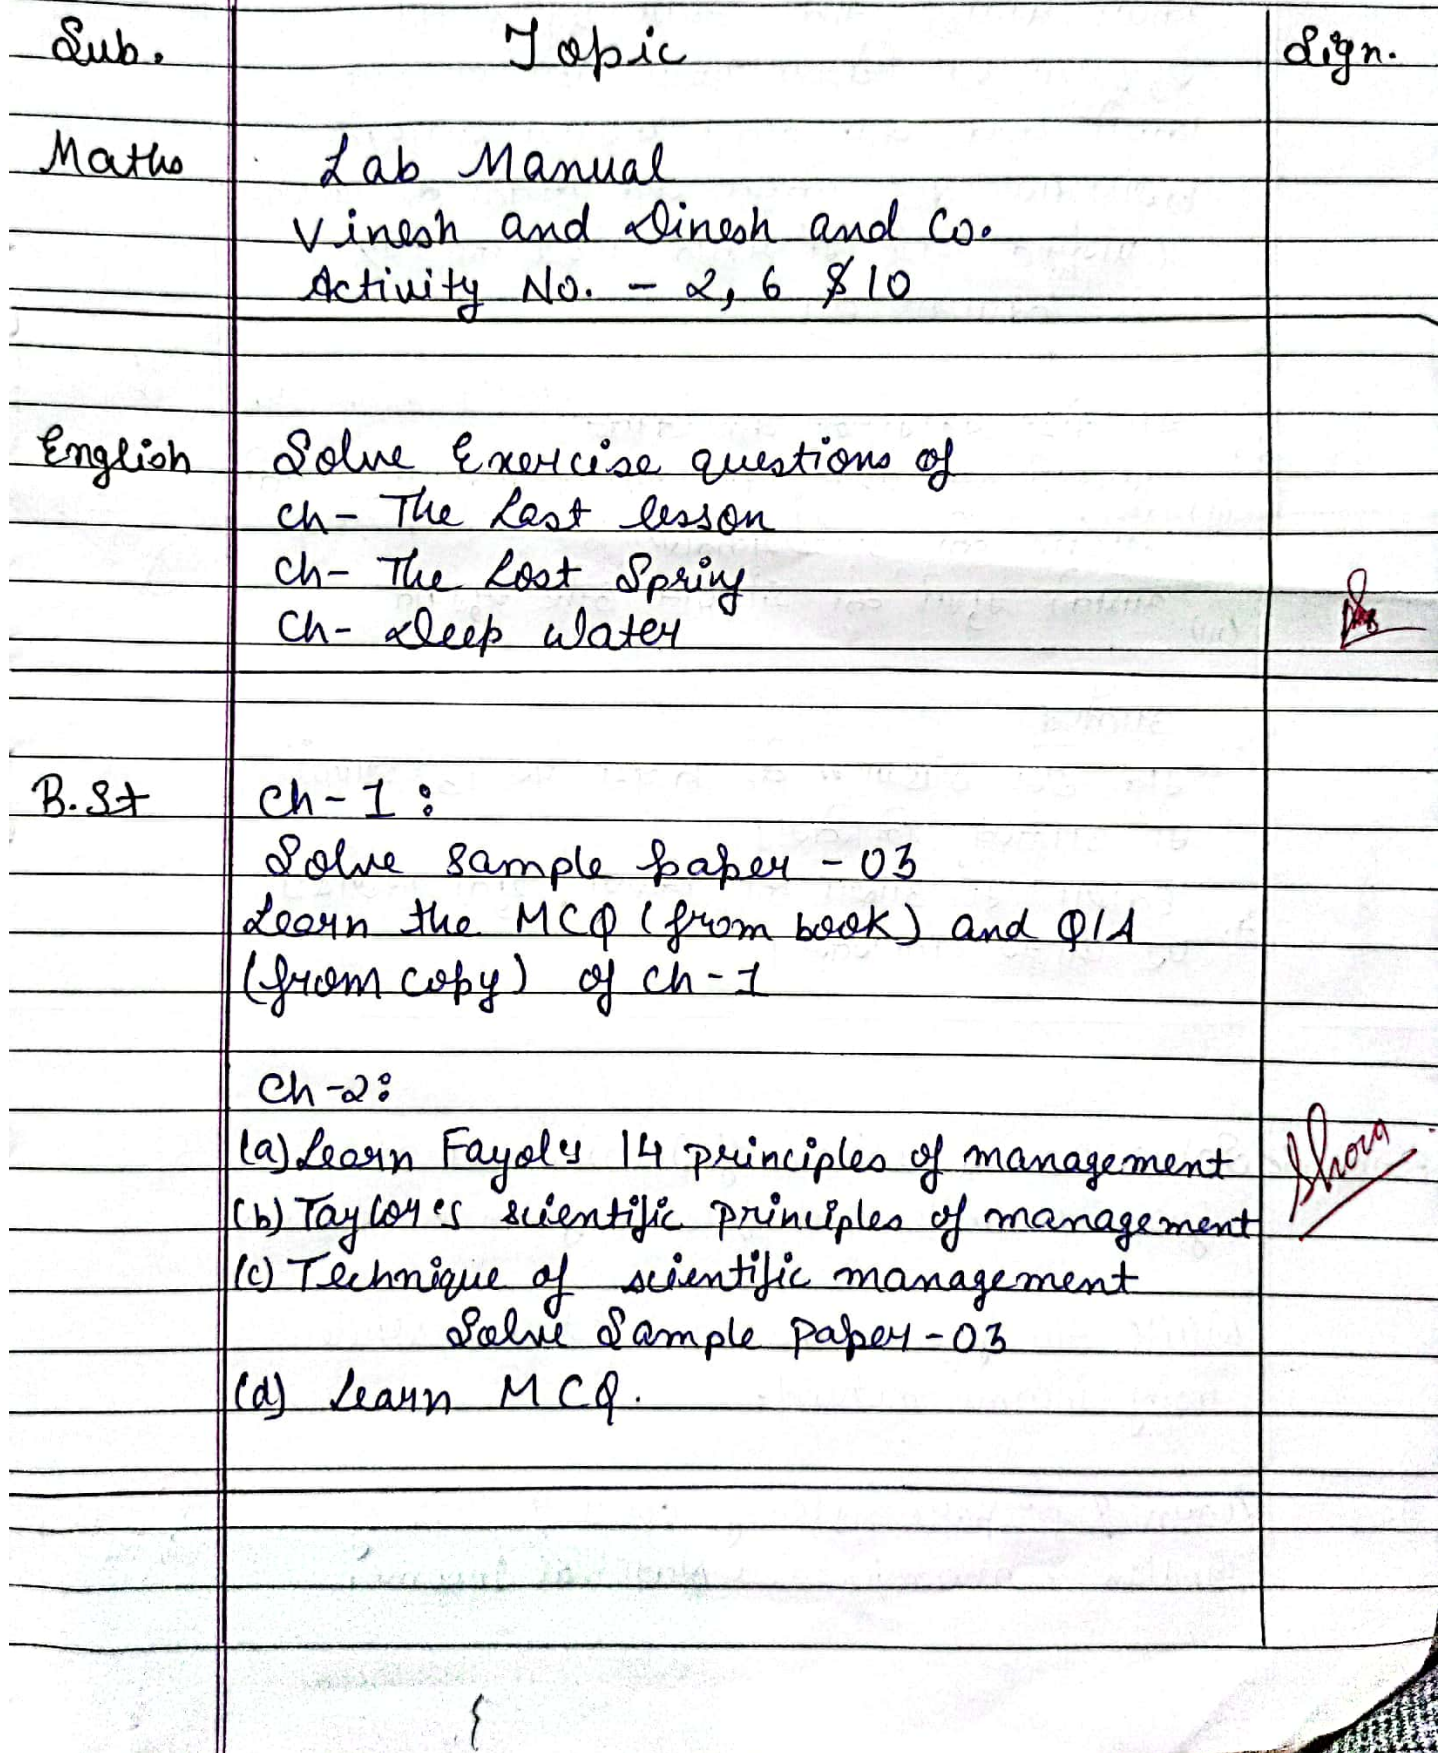 Sub. Topic Sign.
Maths Lab Manual
Vinesh and Dinesh and Co.
Activity No. - 2, 6 $ 10
English Solve Exercise questions of
ch- The Last lesson
ch- The Lost Spring
Ch- Deep Water
B.St Ch-1:
Solve sample paper - 03
Learn the MCQ (from book) and Q/A
(from copy) of ch-1
Ch-2:
(a) Learn Fayol's 14 principles of management
(b) Taylor's scientific principles of management
(c) Technique of scientific management
Solve Sample paper-03
(d) Learn MCQ.